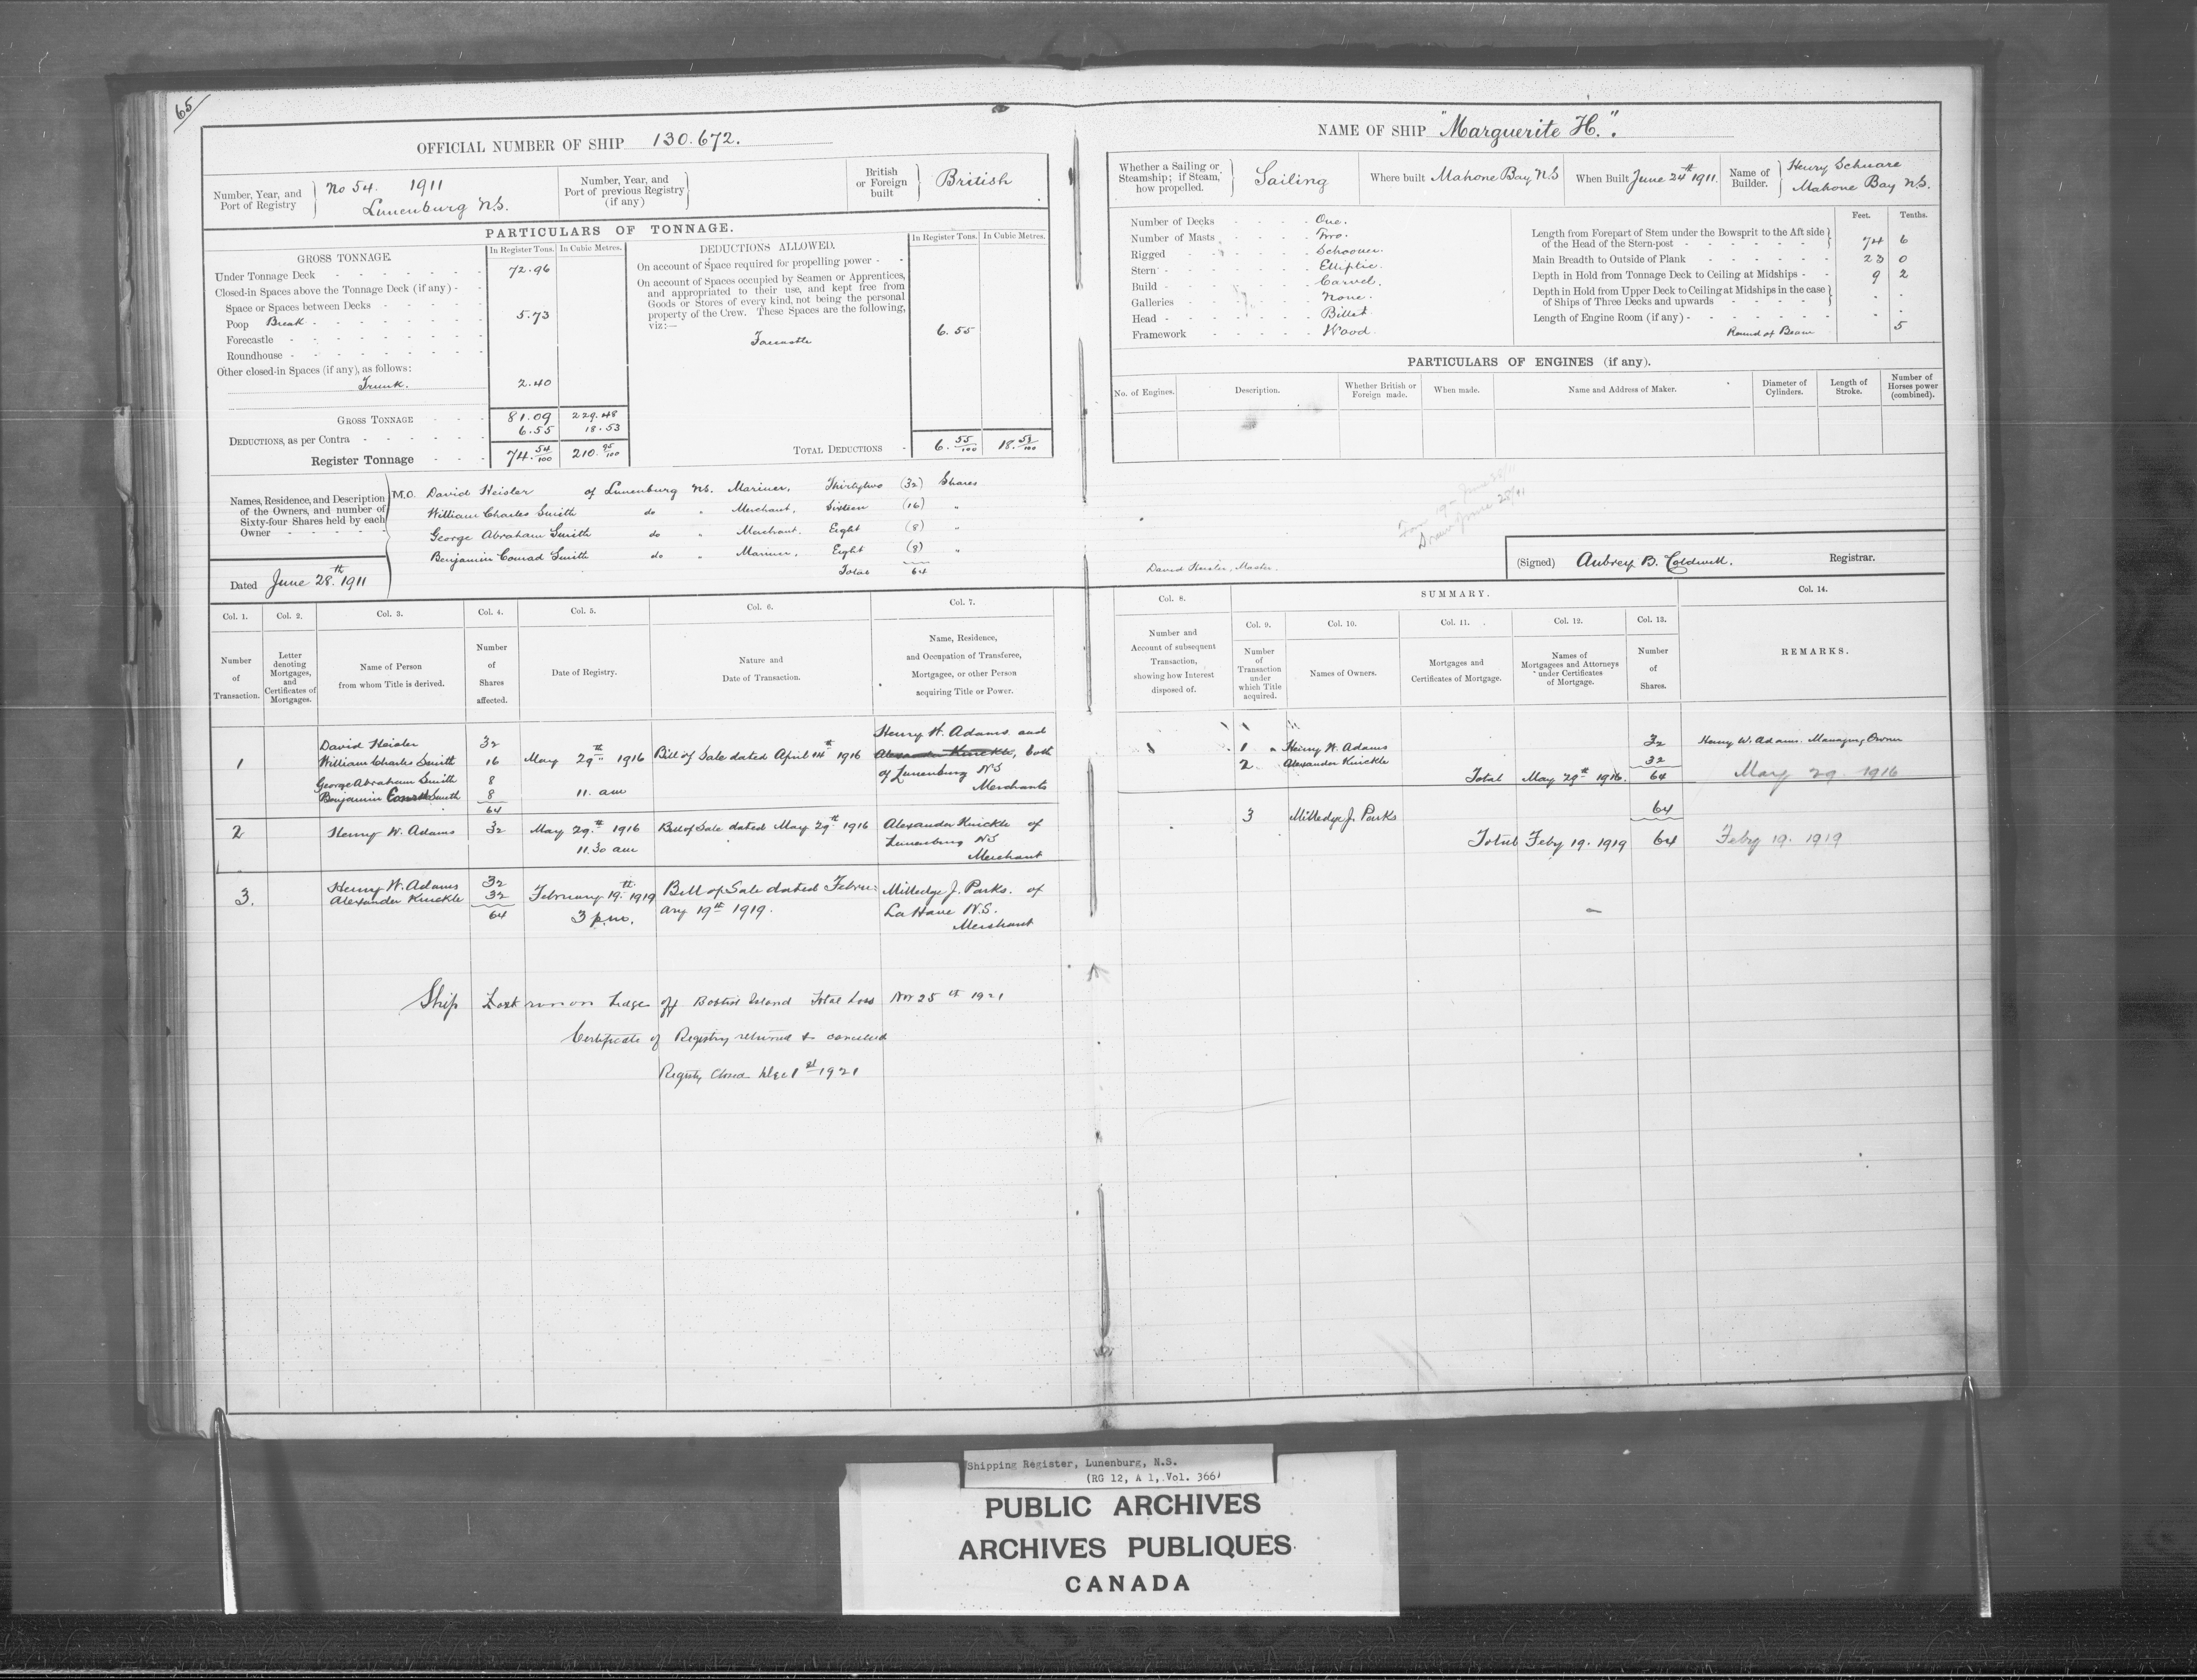 65
OFFICIAL NUMBER OF SHIP 130.672.
Number, Year, and Port of Registry
No 54. 1911
Lunenburg N.S.
Number, Year, and Port of previous Registry (if any)
British or Foreign built
British
PARTICULARS OF TONNAGE.
GROSS TONNAGE.
In Register Tons. In Cubic Metres.
Under Tonnage Deck 72.96
Closed-in Spaces above the Tonnage Deck (if any)
Space or Spaces between Decks
Poop Break 5.73
Forecastle
Roundhouse
Other closed-in Spaces (if any), as follows:
Trunk. 2.40
GROSS TONNAGE 81.09 229.48
DEDUCTIONS, as per Contra 6.55 18.53
Register Tonnage 74.54/100 210.95/100
DEDUCTIONS ALLOWED.
In Register Tons. In Cubic Metres.
On account of Space required for propelling power
On account of Spaces occupied by Seamen or Apprentices,
and appropriated to their use, and kept free from
Goods or Stores of every kind, not being the personal
property of the Crew. These Spaces are the following,
viz:—
Forecastle 6.55
TOTAL DEDUCTIONS 6.55/100 18.53/100
Names, Residence, and Description
of the Owners, and number of
Sixty-four Shares held by each
Owner
M.O. David Heisler of Lunenburg N.S. Mariner, Thirtytwo (32) Shares
William Charles Smith do " Merchant, Sixteen (16) "
George Abraham Smith do " Merchant. Eight (8) "
Benjamin Conrad Smith do " Mariner, Eight (8) "
Total 64
Dated June 28.th 1911
Col. 1. Col. 2. Col. 3. Col. 4. Col. 5. Col. 6. Col. 7.
Number of Transaction.
Letter denoting Mortgages, and Certificates of Mortgages.
Name of Person from whom Title is derived.
Number of Shares affected.
Date of Registry.
Nature and Date of Transaction.
Name, Residence, and Occupation of Transferee, Mortgagee, or other Person acquiring Title or Power.
1
David Heisler 32
William Charles Smith 16
George Abraham Smith 8
Benjamin Conrad Smith 8
64
May 29th 1916
11. am
Bill of Sale dated April 14th 1916
Henry W. Adams and
Alexander Knickle, both
of Lunenburg NS
Merchants
2
Henry W. Adams 32
May 29.th 1916
11.30 am
Bill of Sale dated May 29th 1916
Alexander Knickle of
Lunenburg NS
Merchant
3.
Henry W. Adams 32
Alexander Knickle 32
64
February 19.th 1919
3 p.m.
Bill of Sale dated Febru-
ary 19th 1919.
Milledge J. Parks. of
LaHave N.S.
Merchant
Ship Lost on Ledge off Bostol Island Total Loss Nov 25th 1921
Certificate of Registry returned & cancelled
Registry Closed Dec 1st 1921
NAME OF SHIP "Marguerite H.".
Whether a Sailing or Steamship; if Steam, how propelled.
Sailing
Where built Mahone Bay NS
When Built June 24th 1911.
Name of Builder.
Henry Schnare
Mahone Bay N.S.
Number of Decks One.
Number of Masts Two.
Rigged Schooner.
Stern Elliptic.
Build Carvel.
Galleries None.
Head Billet.
Framework Wood.
Feet. Tenths.
Length from Forepart of Stem under the Bowsprit to the Aft side
of the Head of the Stern-post 74 6
Main Breadth to Outside of Plank 23 0
Depth in Hold from Tonnage Deck to Ceiling at Midships 9 2
Depth in Hold from Upper Deck to Ceiling at Midships in the case
of Ships of Three Decks and upwards
Length of Engine Room (if any)
Round of Beam 5
PARTICULARS OF ENGINES (if any).
No. of Engines.
Description.
Whether British or Foreign made.
When made.
Name and Address of Maker.
Diameter of Cylinders.
Length of Stroke.
Number of Horses power (combined).
David Heisler, Master.
(Signed) Aubrey B. Coldwell. Registrar.
SUMMARY.
Col. 8. Col. 9. Col. 10. Col. 11. Col. 12. Col. 13. Col. 14.
Number and Account of subsequent Transaction, showing how Interest disposed of.
Number of Transaction under which Title acquired.
Names of Owners.
Mortgages and Certificates of Mortgage.
Names of Mortgagees and Attorneys under Certificates of Mortgage.
Number of Shares.
REMARKS.
1 Henry W. Adams 32 Henry W. Adams. Managing Owner
2 Alexander Knickle 32
Total May 29th 1916. 64 May 29. 1916
3 Milledge J. Parks 64
Total Feby 19. 1919 64 Feby 19. 1919
Shipping Register, Lunenburg, N.S.
(RG 12, A 1, Vol. 366)
PUBLIC ARCHIVES
ARCHIVES PUBLIQUES
CANADA